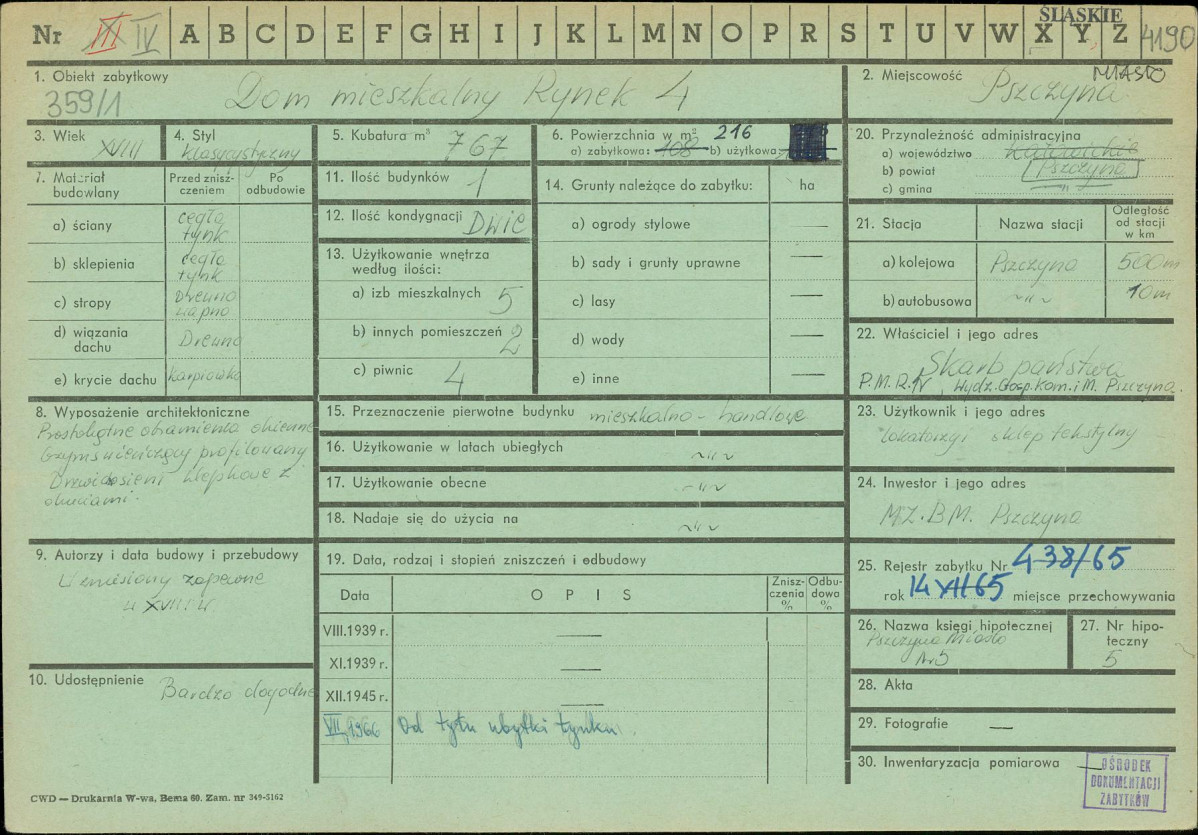 ŚLĄSKIE
Nr III IV A B C D E F G H I J K L M N O P R S T U V W X Y Z 4190
1. Obiekt zabytkowy
359/1
Dom mieszkalny Rynek 4
2. Miejscowość MIASTO
Pszczyna
3. Wiek
XVIII
4. Styl
klasycystyczny
5. Kubatura m³ 767
6. Powierzchnia w m² 216
a) zabytkowa: 108 b) użytkowa:
7. Materiał budowlany
Przed zniszczeniem
Po odbudowie
a) ściany cegła tynk
b) sklepienia cegła tynk
c) stropy Drewno wapno
d) wiązania dachu Drewno
e) krycie dachu karpiówka
8. Wyposażenie architektoniczne
Prostokątne obramienia okienne
Gzyms wieńczący profilowany
Drzwi do sieni klepkowe z
okuciami.
9. Autorzy i data budowy i przebudowy
Wzniesiony zapewne
w XVIII w
10. Udostępnienie Bardzo dogodne
11. Ilość budynków 1
12. Ilość kondygnacji Dwie
13. Użytkowanie wnętrza
według ilości:
a) izb mieszkalnych 5
b) innych pomieszczeń 2
c) piwnic 4
14. Grunty należące do zabytku: ha
a) ogrody stylowe —
b) sady i grunty uprawne —
c) lasy —
d) wody —
e) inne —
15. Przeznaczenie pierwotne budynku mieszkalno - handlowe
16. Użytkowanie w latach ubiegłych ~ıı~
17. Użytkowanie obecne ~ıı~
18. Nadaje się do użycia na ~ıı~
19. Data, rodzaj i stopień zniszczeń i odbudowy
Data
OPIS
Zniszczenia %
Odbudowa %
VIII.1939 r. —
XI.1939 r. —
XII.1945 r. —
VII.1966 Od tyłu ubytki tynku.
20. Przynależność administracyjna
a) województwo katowickie
b) powiat Pszczyna
c) gmina —ıı—
21. Stacja
Nazwa stacji
Odległość od stacji w km
a) kolejowa Pszczyna 500m
b) autobusowa ~ıı~ 10m
22. Właściciel i jego adres
Skarb państwa
P.M.R.N, Wydz. Gosp. Kom. i M. Pszczyna.
23. Użytkownik i jego adres
lokatorzy i sklep tekstylny
24. Inwestor i jego adres
MZ.BM. Pszczyna
25. Rejestr zabytku Nr 438/65
rok 14 XII 65 miejsce przechowywania
26. Nazwa księgi hipotecznej
Pszczyna Miasto
Nr 5
27. Nr hipoteczny
5
28. Akta
29. Fotografie —
30. Inwentaryzacja pomiarowa —
OŚRODEK
DOKUMENTACJI
ZABYTKÓW
CWD — Drukarnia W-wa, Bema 60. Zam. nr 349-5162